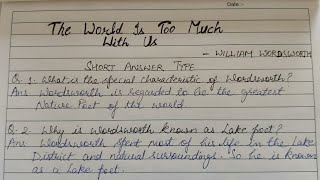 Date -
The World Is Too Much
With Us
- WILLIAM WORDSWORTH
SHORT ANSWER TYPE
Q. 1. What is the special characteristic of Wordsworth?
Ans Wordsworth is regarded to be the greatest
Nature Poet of the world.
Q. 2 Why is wordsworth known as Lake poet?
Ans. Wordsworth spent most of his life in the Lake
District and natural surroundings. So he is known
as a Lake poet.